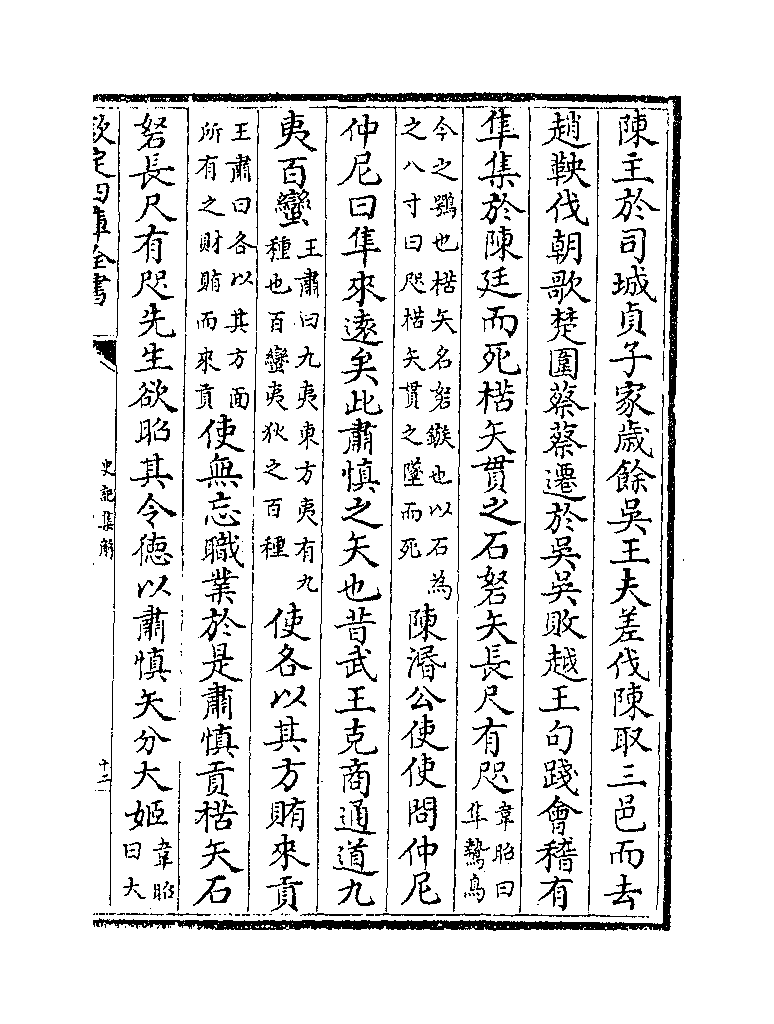 陳主於司城貞子家歲餘吳王夫差伐陳取三邑而去
趙鞅伐朝歌楚圍蔡蔡遷於吳吳敗越王句踐會稽有
隼集於陳廷而死楛矢貫之石砮矢長尺有咫韋昭曰隼鷙鳥
今之鶚也楛矢名砮鏃也以石為之八寸曰咫楛矢貫之墜而死陳湣公使使問仲尼
仲尼曰隼來逺矣此肅慎之矢也昔武王克商通道九
夷百蠻王肅曰九夷東方夷有九種也百蠻夷狄之百種使各以其方賄來貢
王肅曰各以其方面所有之財賄而來貢使無忘職業於是肅慎貢楛矢石
砮長尺有咫先生欲昭其令徳以肅慎矢分大姬韋昭曰大
欽定四庫全書
史記集解
十二